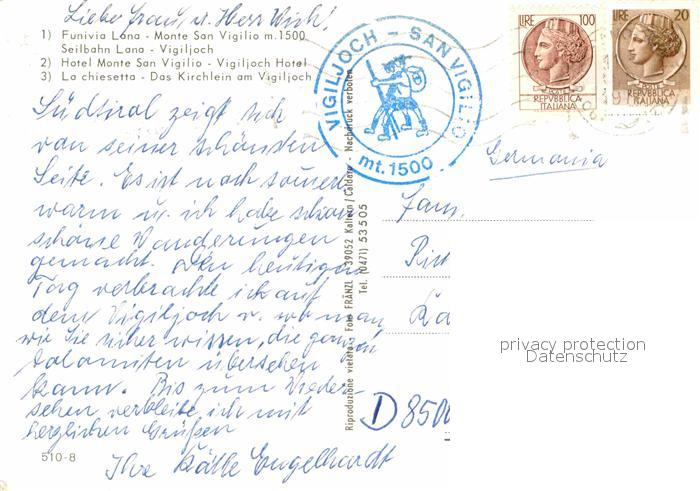 Liebe Frau, u. Herr Wich!
1) Funivia Lana - Monte San Vigilio m.1500
Seilbahn Lana - Vigiljoch
2) Hotel Monte San Vigilio - Vigiljoch Hotel
3) La chiesetta - Das Kirchlein am Vigiljoch
Südtirol zeigt sich
von seiner schönsten
Seite. Es ist noch
warm u. ich habe schon
schöne Wanderungen
gemacht. Den heutigen
Tag verbrachte ich auf
dem Vigiljoch u. wo man,
wie Sie sicher wissen, die ganzen
Dolomiten übersehen
kann. Bis zum Wieder-
sehen verbleibe ich mit
herzlichen Grüßen
Ihre Käthe Engelhardt
510-8
Riproduzione vietata - Foto FRÄNZL - I 39052 Kaltern / Caldaro - Nachdruck verboten
Tel. (0471) 53505
VIGILJOCH - SAN VIGILIO
mt. 1500
LIRE 100
POSTE
REPVBBLICA
ITALIANA
LIRE 20
POSTE
REPVBBLICA
ITALIANA
Germania
Fam.
D 8500
privacy protection
Datenschutz